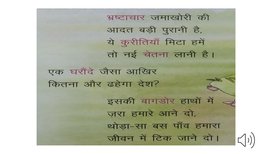 भ्रष्टाचार जमाखोरी की
आदत बड़ी पुरानी है,
ये कुरीतियाँ मिटा हमें
तो नई चेतना लानी है।
एक घरौंदे जैसा आखिर
कितना और ढहेगा देश?
इसकी बागडोर हाथों में
ज़रा हमारे आने दो,
थोड़ा-सा बस पाँव हमारा
जीवन में टिक जाने दो।